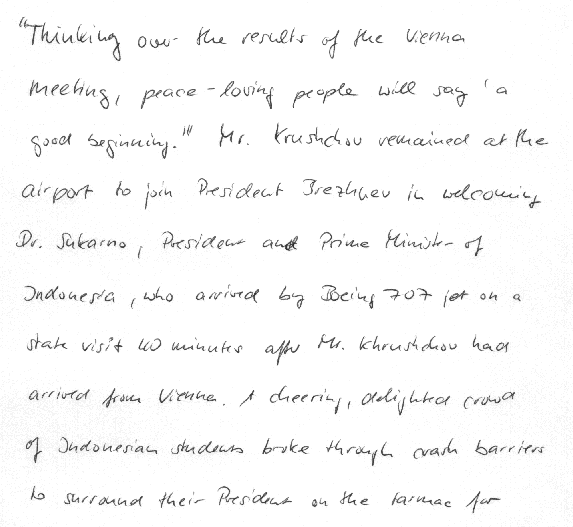 "Thinking over the results of the Vienna
meeting, peace-loving people will say 'a
good beginning.'" Mr. Krushchov remained at the
airport to join President Brezhnev in welcoming
Dr. Sukarno, President and Prime Minister of
Indonesia, who arrived by Boeing 707 jet on a
state visit 40 minutes after Mr. Khrushchov had
arrived from Vienna. A cheering, delighted crowd
of Indonesian students broke through crash barriers
to surround their President on the tarmac for